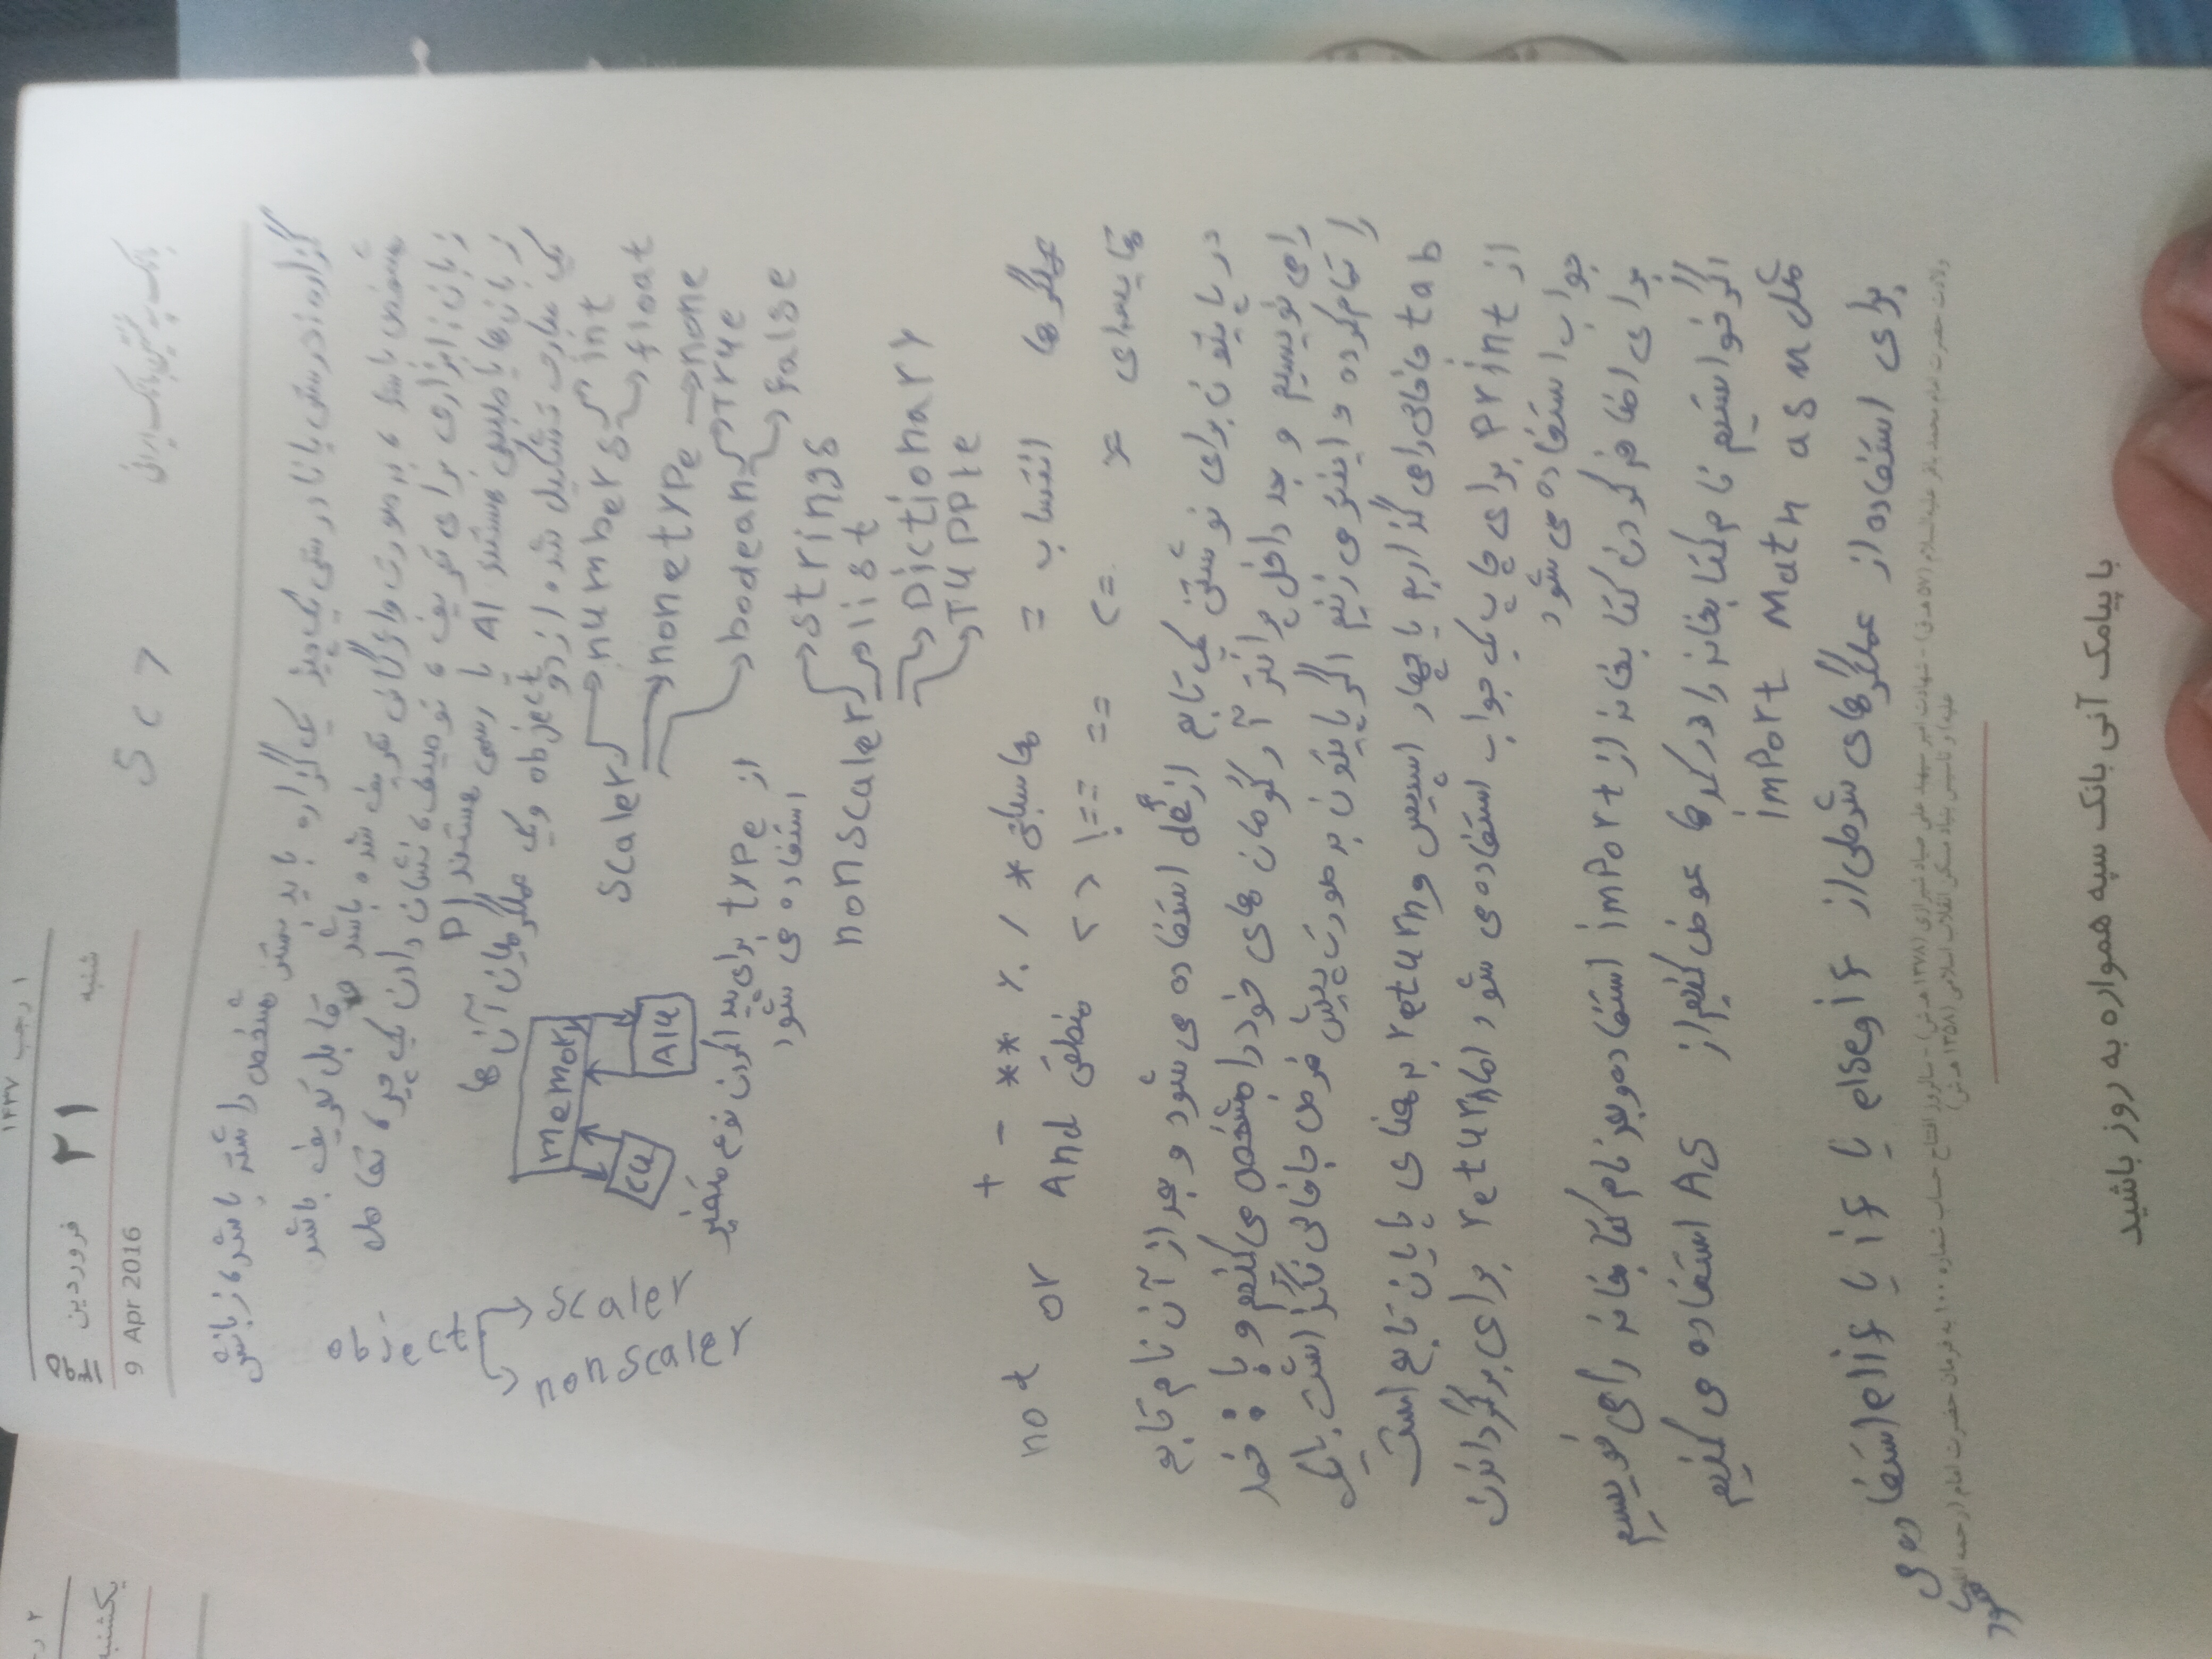 ۱ رجب ۱۴۳۷
۱۳۹۵ فروردین ۲۱ شنبه
9 Apr 2016
بانک سپه نخستین بانک ایرانی
یکشنبه
گزاره: درستی یا نادرستی یک چیز یک گزاره باید بستر مشخص داشته باشد، زبانش
مشخص باشد، به صورت واژگانی تعریف شده باشد و قابل تعریف باشد
زبان: ابزاری برای تعریف، توصیف، نشان دادن یک چیز، تعامل
زبان ها یا طبیعی هستند AI یا رسمی هستند PI
یک عبارت تشکیل شده از دو object و یک عملگر میان آن ها
object → scaler
→ nonscaler
memory
cu
Alu
scaler → numbers → int
→ float
→ nonetype → none
→ boolean → True
→ false
از type برای پیدا کردن نوع متغیر
استفاده می شود
nonscaler → strings
→ list
→ Dictionary
→ TUPPle
عملگر ها انتساب = محاسباتی * / % ** - +
مقایسه‌ای == !== < > منطقی And or not
در پایتون برای نوشتن یک تابع از def استفاده می شود و بعد از آن نام تابع
را می نویسیم و بعد داخل پرانتز آرگومان های خود را مشخص می کنیم و با : خط
را تمام کرده و اینتر می زنیم اگر پایتون به صورت پیش فرض جاخالی نگذاشت با یک
tab جاخالی را می گذاریم یا چهار اسپیس و return به معنای پایان تابع است
از print برای چاپ یک جواب استفاده می شود اما return برای برگرداندن
جواب استفاده می شود
برای اضافه کردن کتابخانه از import استفاده و بعد نام کتابخانه را می نویسیم
اگر خواستیم نام کتابخانه را در کدها عوض کنیم از As استفاده می کنیم
مثل import Math as m
برای استفاده از عملگرهای شرطی از if و else یا if یا elif استفاده می
شود
ولادت حضرت امام محمد باقر علیه‌السلام (۵۷ هـ.ق) - شهادت امیر سپهبد علی صیاد شیرازی (۱۳۷۸ هـ.ش) - سالروز افتتاح حساب شماره ۱۰۰ به فرمان حضرت امام (رحمه الله
علیه) و تاسیس بنیاد مسکن انقلاب اسلامی (۱۳۵۸ هـ.ش)
با پیامک آنی بانک سپه همواره به روز باشید